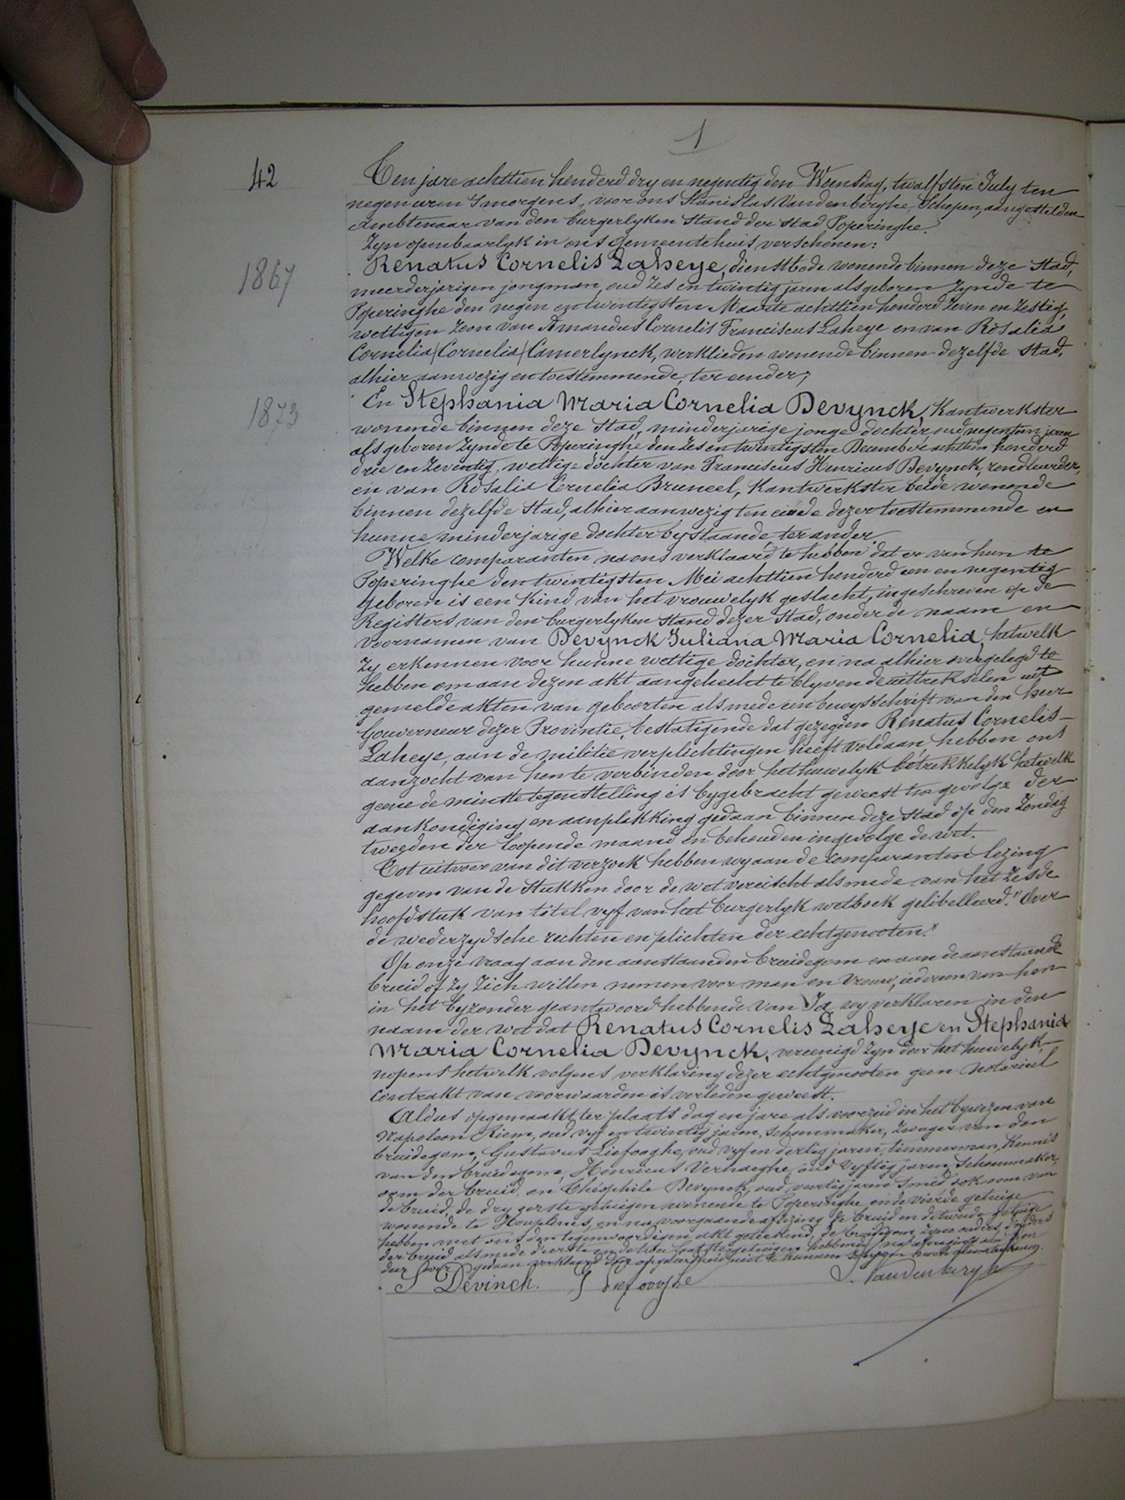 1
42
Ten jare achttien honderd dry en negentig den Woensdag, twalfsten July ten
negen uren 's morgens, voor ons Stanislas Vandenberghe, Schepen, aangestelden
Ambtenaar van den burgerlyken stand der stad Poperinghe.
Zyn openbaarlyk in ons gemeentehuis verschenen:
1867
Renatus Cornelis Laheye, dienstbode wonende binnen deze stad,
meerderjarigen jongman, oud zes en twintig jaren als geboren zynde te
Poperinghe den negen en twintigsten Maarte achttien honderd zeven en zestig,
wettigen zoon van Amandus Cornelis Franciscus Laheye en van Rosalia
Cornelia (Cornelia) Camerlynck, werklieden wonende binnen dezelfde stad,
alhier aanwezig en toestemmende, ter eender;
1873
En Stephania Maria Cornelia Devynck, Kantwerkster
wonende binnen deze stad, minderjarige jonge dochter oud negentien jaren
als geboren zynde te Poperinghe den zes en twintigsten December achttien honderd
drie en zeventig, wettige dochter van Franciscus Henricus Devynck,
en van Rosalia Cornelia Bruneel, Kantwerkster beide wonende
binnen dezelfde stad, alhier aanwezig ten einde dezer toestemmende en
hunne minderjarige dochter bystaande, ter ander.
Welke comparanten na ons verklaard te hebben dat er van hun te
Poperinghe den twintigsten Mei achttien honderd een en negentig
geboren is een kind van het vrouwelyk geslacht, ingeschreven op de
Registers van den burgerlyken stand dezer stad, onder de naam en
voornamen van Devynck Juliana Maria Cornelia, hetwelk
zy erkennen voor hunne wettige dochter, en na alhier overgelegd te
hebben om aan dezen akt aangehecht te blyven de uittrekselen uit
gemelde akten van geboorten alsmede een bewysschrift van den heer
Gouverneur dezer Provintie, bestatigende dat gezegden Renatus Cornelis
Laheye, aan de militie verplichtingen heeft voldaan, hebben ons
aanzocht van hen te verbinden door het huwelyk betrekkelyk hetwelk
geene de minste tegenstelling is bygebracht geweest ten gevolge der
aankondiging en aanplekking gedaan binnen deze stad op den Zondag
tweeden der loopende maand en behouden ingevolge de wet.
Tot uitvoer van dit verzoek hebben wy aan de comparanten lezing
gegeven van de stukken door de wet vereischt alsmede van het zesde
hoofdstuk van titel vyf van het burgerlyk wetboek gelibelleerd: "Over
de wederzydsche rechten en plichten der echtgenooten."
Op onze vraag aan den aanstaanden bruidegom en aan de aanstaande
bruid of zy zich willen nemen voor man en vrouw, iedereen van hen
in het byzonder geantwoord hebbende van Ja, wy verklaren in den
naam der wet dat Renatus Cornelis Laheye en Stephania
Maria Cornelia Devynck, vereenigd zyn door het huwelyk,
nopens hetwelk volgens verklaring dezer echtgenooten geen notarieel
contrakt van voorwaarden is verleden geweest.
Aldus opgemaakt ter plaats dag en jare als voorzeid in het bywezen van
Napoleon Riem, oud vyf en twintig jaren, schoenmaker, zwager van den
bruidegom, Gustavus Liefooghe, oud vyf en dertig jaren, timmerman, kennis
van den bruidegom, Henricus Verhaeghe, oud vyftig jaren, schoenmaker,
oom der bruid, en Théophile Devynck, oud veertig jaren, smid ook oom van
de bruid, de dry eerste getuigen wonende te Poperinghe en de vierde getuige
wonende te Houplines, en na voorgaande aflezing de bruid en de tweede getuige
hebben met ons den tegenwoordigen akt geteekend, de bruidegom, zyne ouders,
der bruid alsmede
S Devinck. G Liefooghe S. Vandenberghe